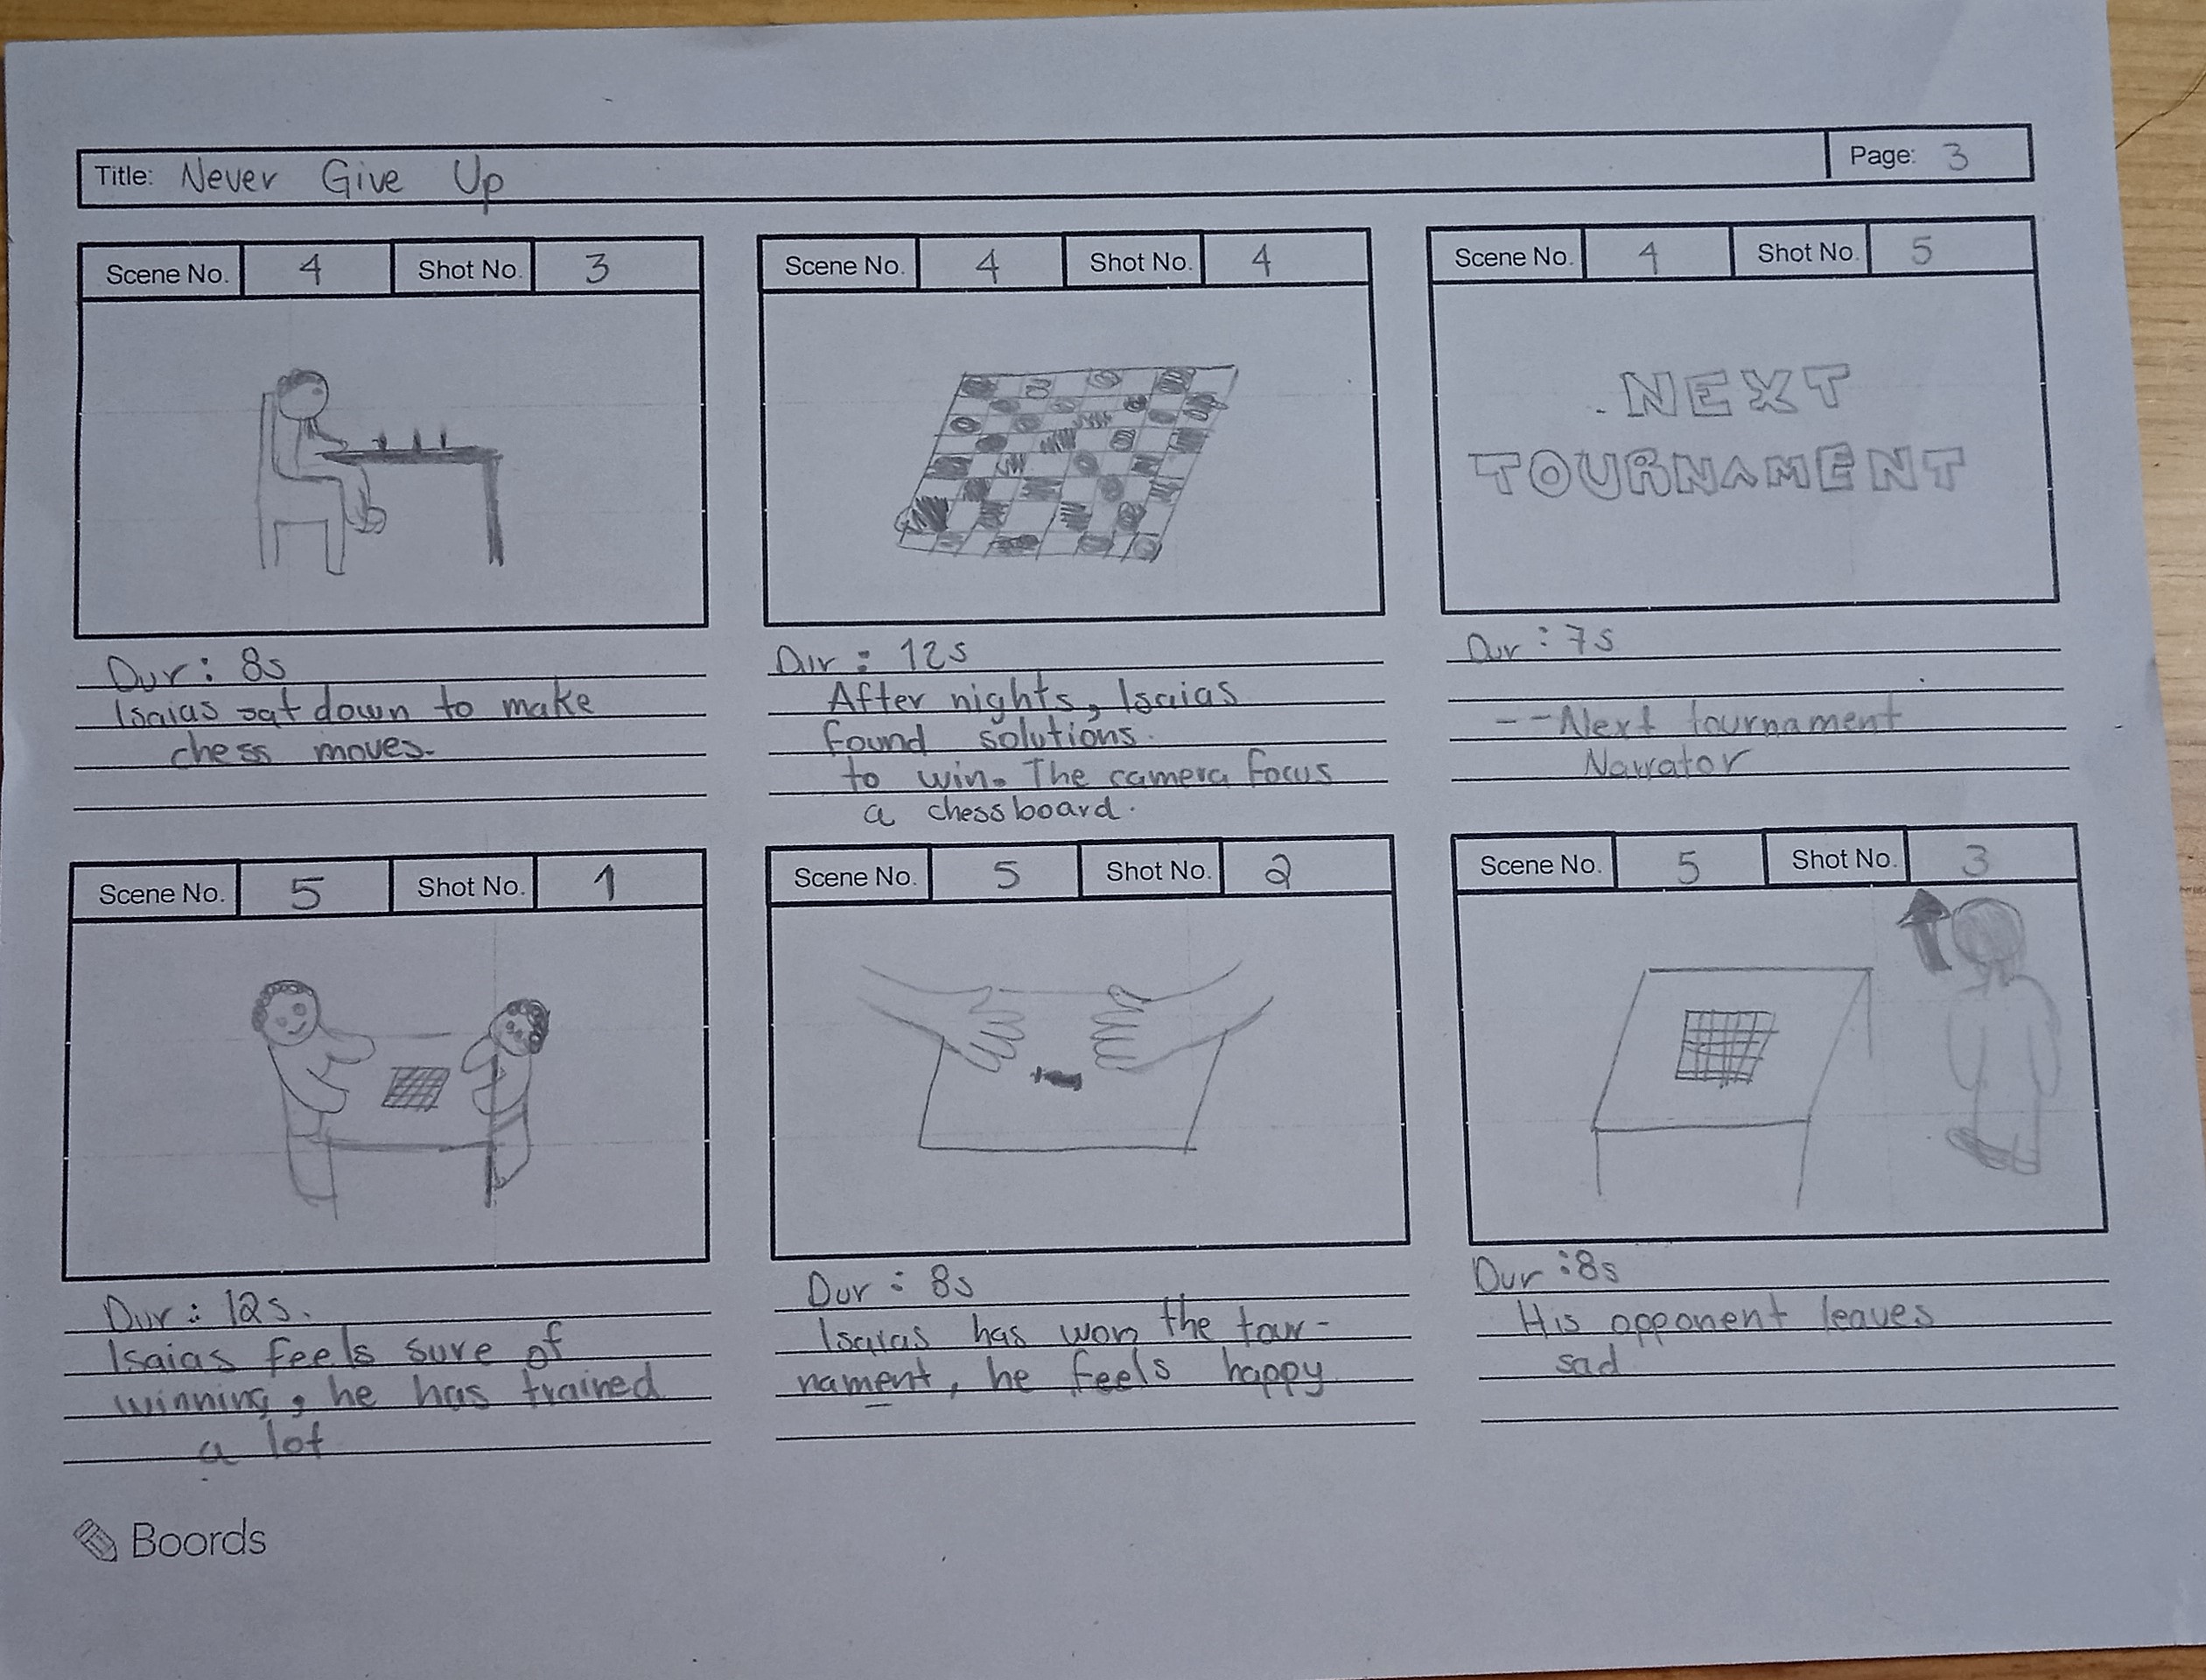 Title: Never Give Up
Page: 3
Scene No. 4 Shot No. 3
Dur: 8s
Isaias sat down to make
chess moves.
Scene No. 4 Shot No. 4
Dur: 12s
After nights, Isaias
found solutions.
to win. The camera focus
a chessboard.
Scene No. 4 Shot No. 5
NEXT
TOURNAMENT
Dur: 7s
--Next tournament
Narrator
Scene No. 5 Shot No. 1
Dur: 12s.
Isaias feels sure of
winning, he has trained
a lot
Scene No. 5 Shot No. 2
Dur: 8s
Isaias has won the tour-
nament, he feels happy
Scene No. 5 Shot No. 3
Dur: 8s
His opponent leaves
sad
Boords